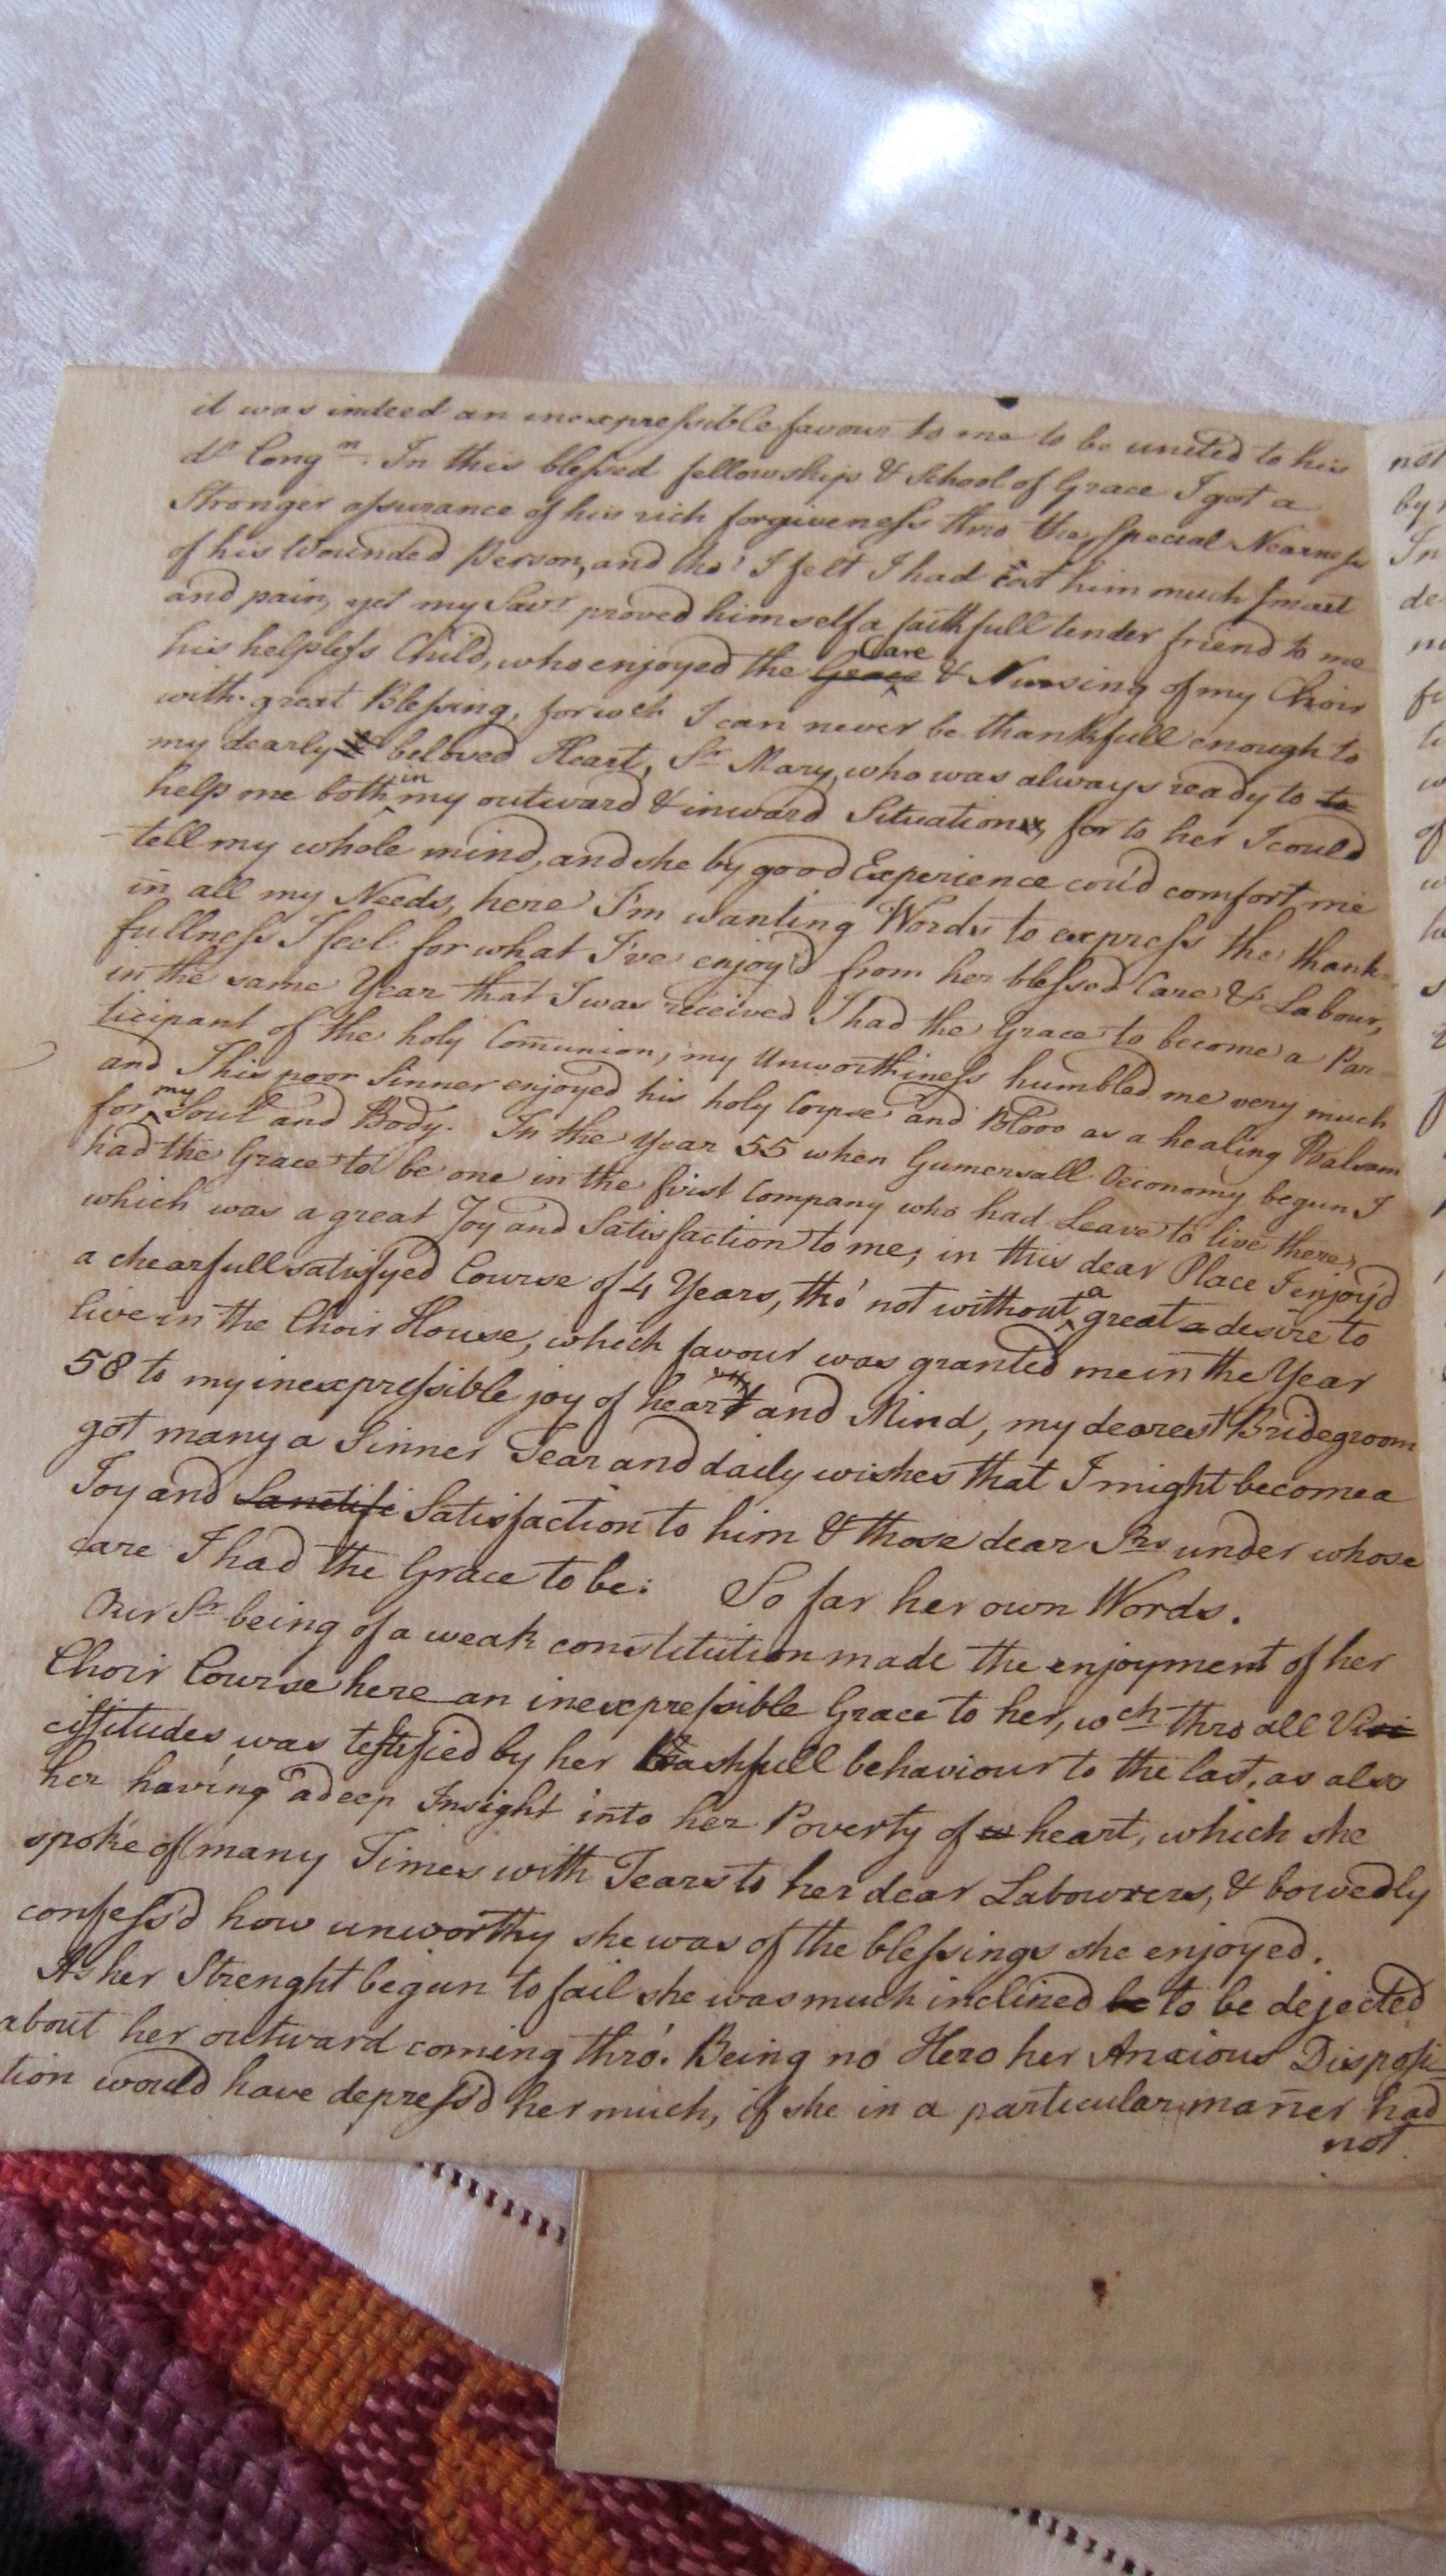 it was indeed an inexpressible favour to me to be united to his
dr Congn. In this blessed fellowship & School of Grace I got a
Stronger assurance of his rich forgiveness thro the Special Nearness
of his Wounded Person, and tho' I felt I had cost him much smart
and pain, yet my Savr proved himself a faithfull tender friend to me
his helpless Child, who enjoyed the Grace Care & Nursing of my Choir
with great Blessing, for wch I can never be thankfull enough to
my dearly beloved Heart, Sr Mary, who was always ready to to
help me both in my outward & inward Situation, for to her I could
tell my whole mind, and she by good Experience cou'd comfort me
in all my Needs, here I'm wanting Words to express the thank-
fullness I feel for what I've enjoy'd from her blessed Care & Labour,
in the same Year that I was received I had the Grace to become a Par-
ticipant of the holy Comunion, my Unworthiness humbled me very much
and This poor Sinner enjoyed his holy Corpse and Blood as a healing Balsam
for my Soul and Body. In the Year 55 when Gumersall Oeconomy begun I
had the Grace to be one in the first Company who had Leave to live there,
which was a great Joy and Satisfaction to me; in this dear Place I enjoy'd
a chearfull satisfyed Course of 4 Years, tho' not without a great a desire to
live in the Choir House, which favour was granted me in the Year
58 to my inexpressible joy of heart and Mind, my dearest Bridegroom
got many a Sinner Tear and daily wishes that I might become a
Joy and Sanctifi Satisfaction to him & those dear Srs under whose
care I had the Grace to be: So far her own Words.
Our Sr being of a weak constitution made the enjoyment of her
Choir Course here an inexpressible Grace to her, wch thro all Visi
cissitudes was testified by her Bashfull behaviour to the last, as also
her having a deep Insight into her Poverty of heart, which she
spoke of many Times with Tears to her dear Labourers, & bowedly
confess'd how unworthy she was of the blessings she enjoyed.
As her Strenght begun to fail she was much inclined be to be dejected
about her outward coming thro'. Being no Hero her Anxious Disposi-
tion would have depress'd her much, if she in a particular mañer had
not
not
by
In
de